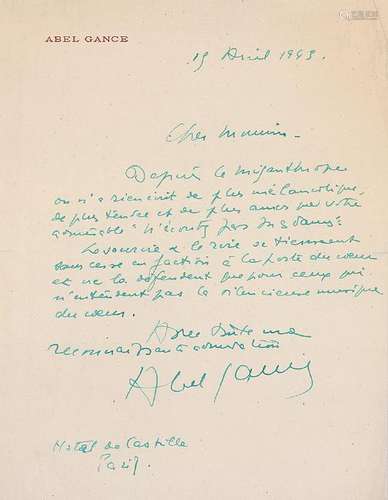 ABEL GANCE
19 Avril 1943.
Cher
Depuis le Misanthrope
on n'a rien écrit de plus mélancolique,
de plus tendre et de plus amer que votre
admirable "N'écoutez pas Mesdames"
Le sourire et le rire se tiennent
sans cesse en faction à la porte du cœur
et ne la défendent que pour ceux qui
n'entendent pas la silencieuse musique
du cœur.
Avec toute ma
reconnaissante admiration
Abel Gance
Hotel de Castille
Paris.